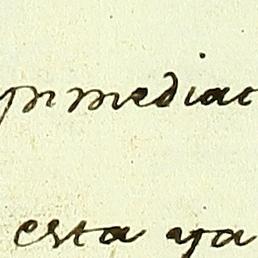 ynmediac
esta ya